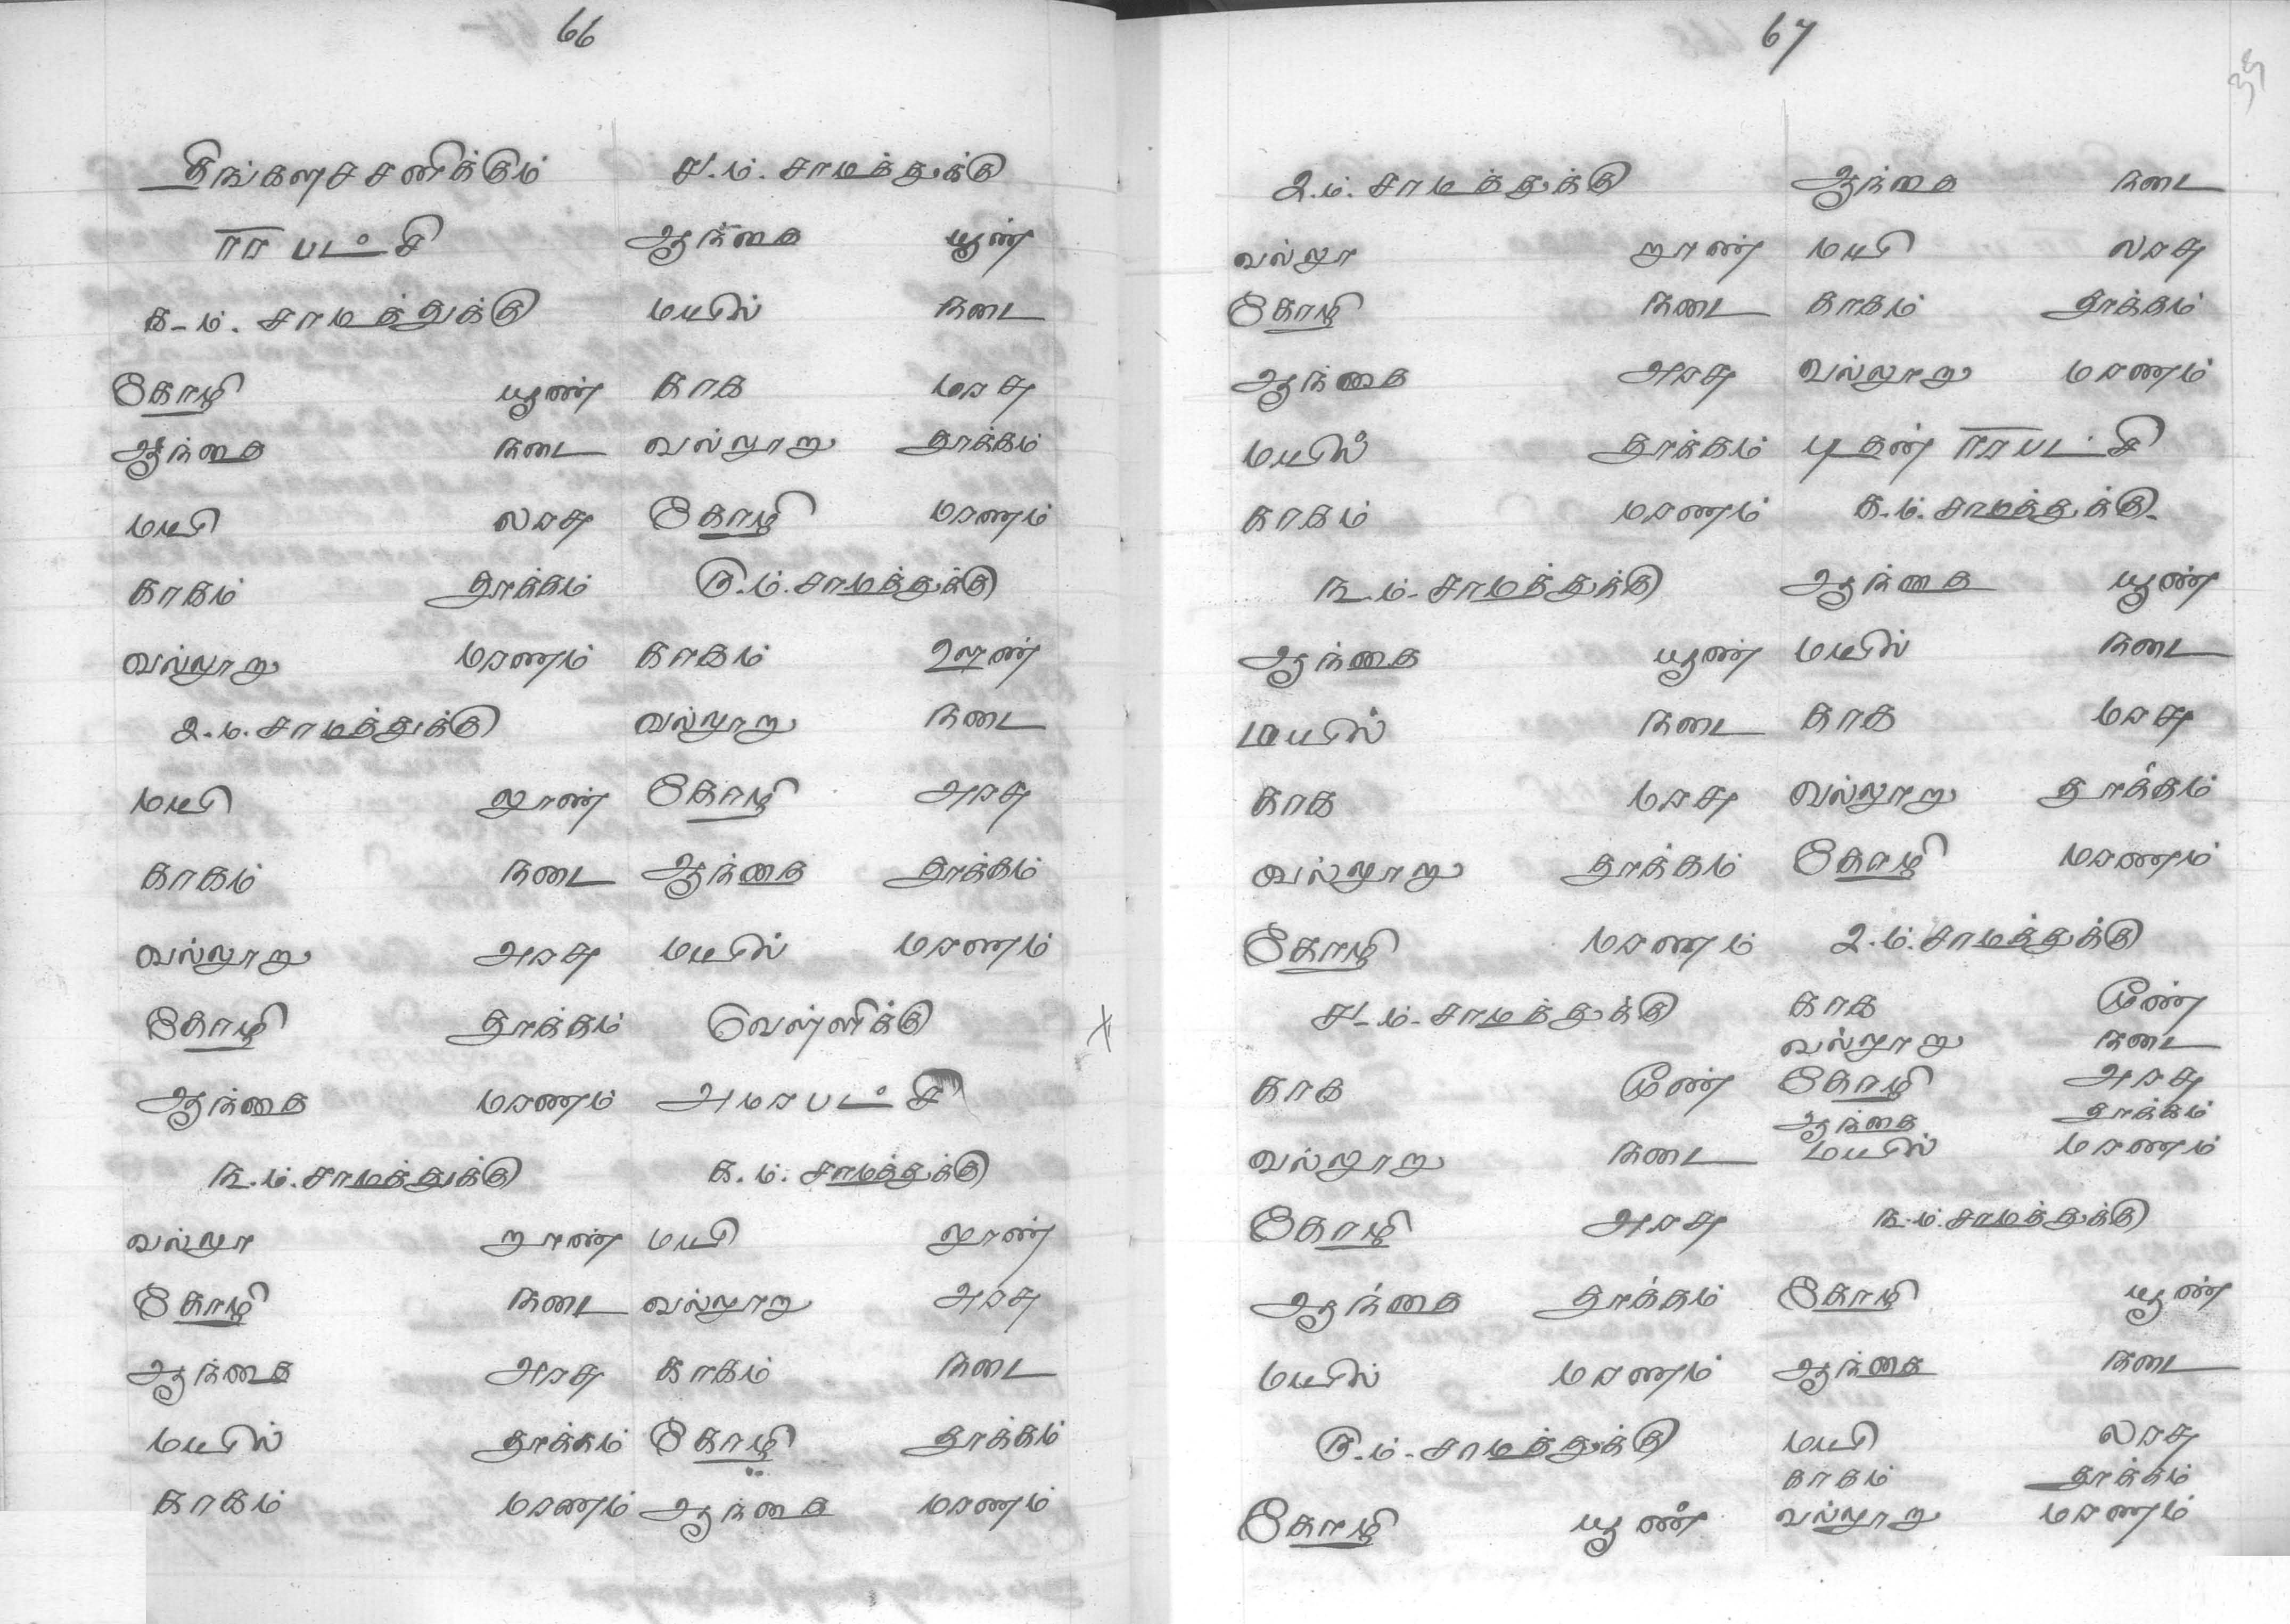 66
திங்களச சனிக்கும்
ரா பட்சி
க-ம். சாமத்துக்கு
கோழி யூண்
ஆந்தை நடை
மயி லரசு
காகம் தூக்கம்
வல்லூறு மரணம்
உ.ம். சாமத்துக்கு
மயி லூண்
காகம் நடை
வல்லூறு அரசு
கோழி தூக்கம்
ஆந்தை மரணம்
௩.ம். சாமத்துக்கு
வல்லூ றூண்
கோழி நடை
ஆந்தை அரசு
மயில் தூக்கம்
காகம் மரணம்
ச.ம். சாமத்துக்கு
ஆந்தை யூண்
மயில் நடை
காக மரசு
வல்லூறு தூக்கம்
கோழி மரணம்
ரு.ம். சாமத்துக்கு
காகம் ஊண்
வல்லூறு நடை
கோழி அரசு
ஆந்தை தூக்கம்
மயில் மரணம்
வெள்ளிக்கு
அமரபட்சி
க.ம். சாமத்துக்கு
மயி லூண்
வல்லூறு அரசு
காகம் நடை
கோழி தூக்கம்
ஆந்தை மரணம்
67
உ.ம். சாமத்துக்கு
வல்லூ றூண்
கோழி நடை
ஆந்தை அரசு
மயில் தூக்கம்
காகம் மரணம்
௩.ம். சாமத்துக்கு
ஆந்தை யூண்
மயில் நடை
காக மரசு
வல்லூறு தூக்கம்
கோழி மரணம்
ச.ம். சாமத்துக்கு
காக மூண்
வல்லூறு நடை
கோழி அரசு
ஆந்தை தூக்கம்
மயில் மரணம்
ரு.ம். சாமத்துக்கு
கோழி யூண்
ஆந்தை நடை
மயி லரசு
காகம் தூக்கம்
வல்லூறு மரணம்
புதன் ராபட்சி
க.ம். சாமத்துக்கு
ஆந்தை யூண்
மயில் நடை
காக மரசு
வல்லூறு தூக்கம்
கோழி மரணம்
உ.ம். சாமத்துக்கு
காக மூண்
வல்லூறு நடை
கோழி அரசு
ஆந்தை தூக்கம்
மயில் மரணம்
௩.ம். சாமத்துக்கு
கோழி யூண்
ஆந்தை நடை
மயி லரசு
காகம் தூக்கம்
வல்லூறு மரணம்